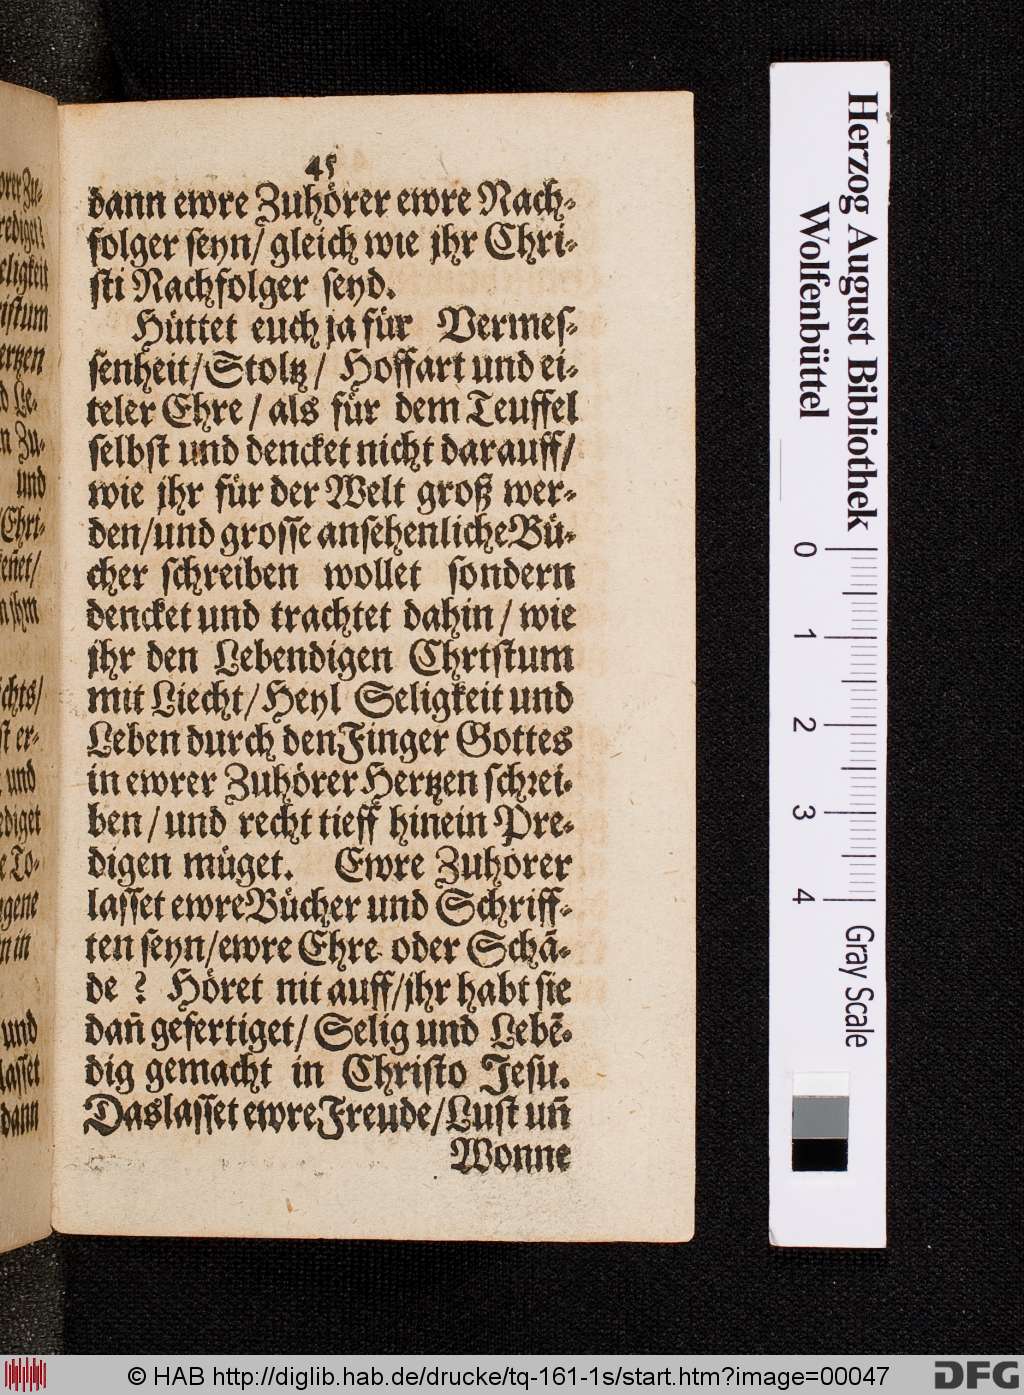 45
dann ewre Zuhörer ewre Nach-
folger seyn/ gleich wie jhr Chri-
sti Nachfolger seyd.
Hüttet euch ja für Vermes-
senheit/Stoltz/ Hoffart und ei-
teler Ehre/ als für dem Teuffel
selbst und dencket nicht darauff/
wie jhr für der Welt groß wer-
den/und grosse ansehenliche Bü-
cher schreiben wollet sondern
dencket und trachtet dahin/ wie
jhr den Lebendigen Chrtstum
mit Liecht/Heyl Seligkeit und
Leben durch den Finger Gottes
in ewrer Zuhörer Hertzen schrei-
ben/und recht tieff hinein Pre-
digen müget. Ewre Zuhörer
lasset ewre Bücher und Schriff-
ten seyn/ewre Ehre oder Schã-
de? Höret nit auff/jhr habt sie
dañ gefertiget/ Selig und Lebẽ-
dig gemacht in Christo Jesu.
Das lasset ewre Freude/Lust uñ
Wonne
Herzog August Bibliothek
Wolfenbüttel
0 1 2 3 4
Gray Scale
© HAB http://diglib.hab.de/drucke/tq-161-1s/start.htm?image=00047
DFG